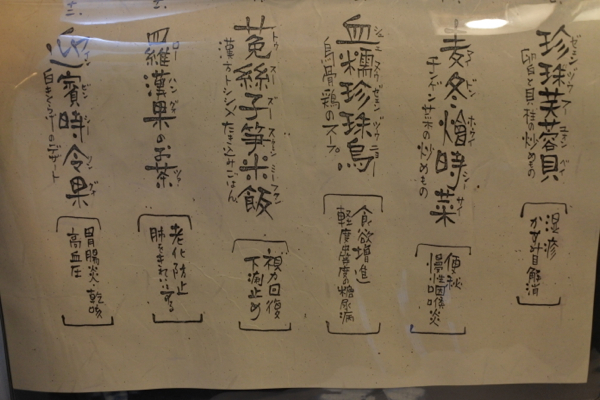 珍珠芙蓉貝
卵と貝柱の炒めもの
湿疹
かすみ目解消
麦冬燴時菜
チンゲン菜の炒めもの
便秘
慢性気管炎
血糯珍珠鳥
烏骨鶏のスープ
食欲増進
軽度中度の糖尿病
菟絲子笋米飯
漢方トシシ入たき込みごはん
視力回復
下痢止め
羅漢果のお茶
老化防止
肺をきれいにする
迎賓時令果
白きくらげのデザート
胃腸炎・乾咳
高血圧